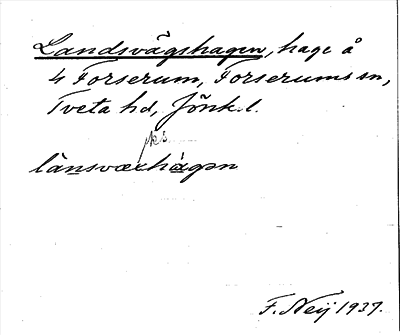 Landsvägshagen, hage å
4 Forserum, Forserums sn,
Tveta hd, Jönk. l.
ks
lànsvæxhágən
F. Neij 1937.